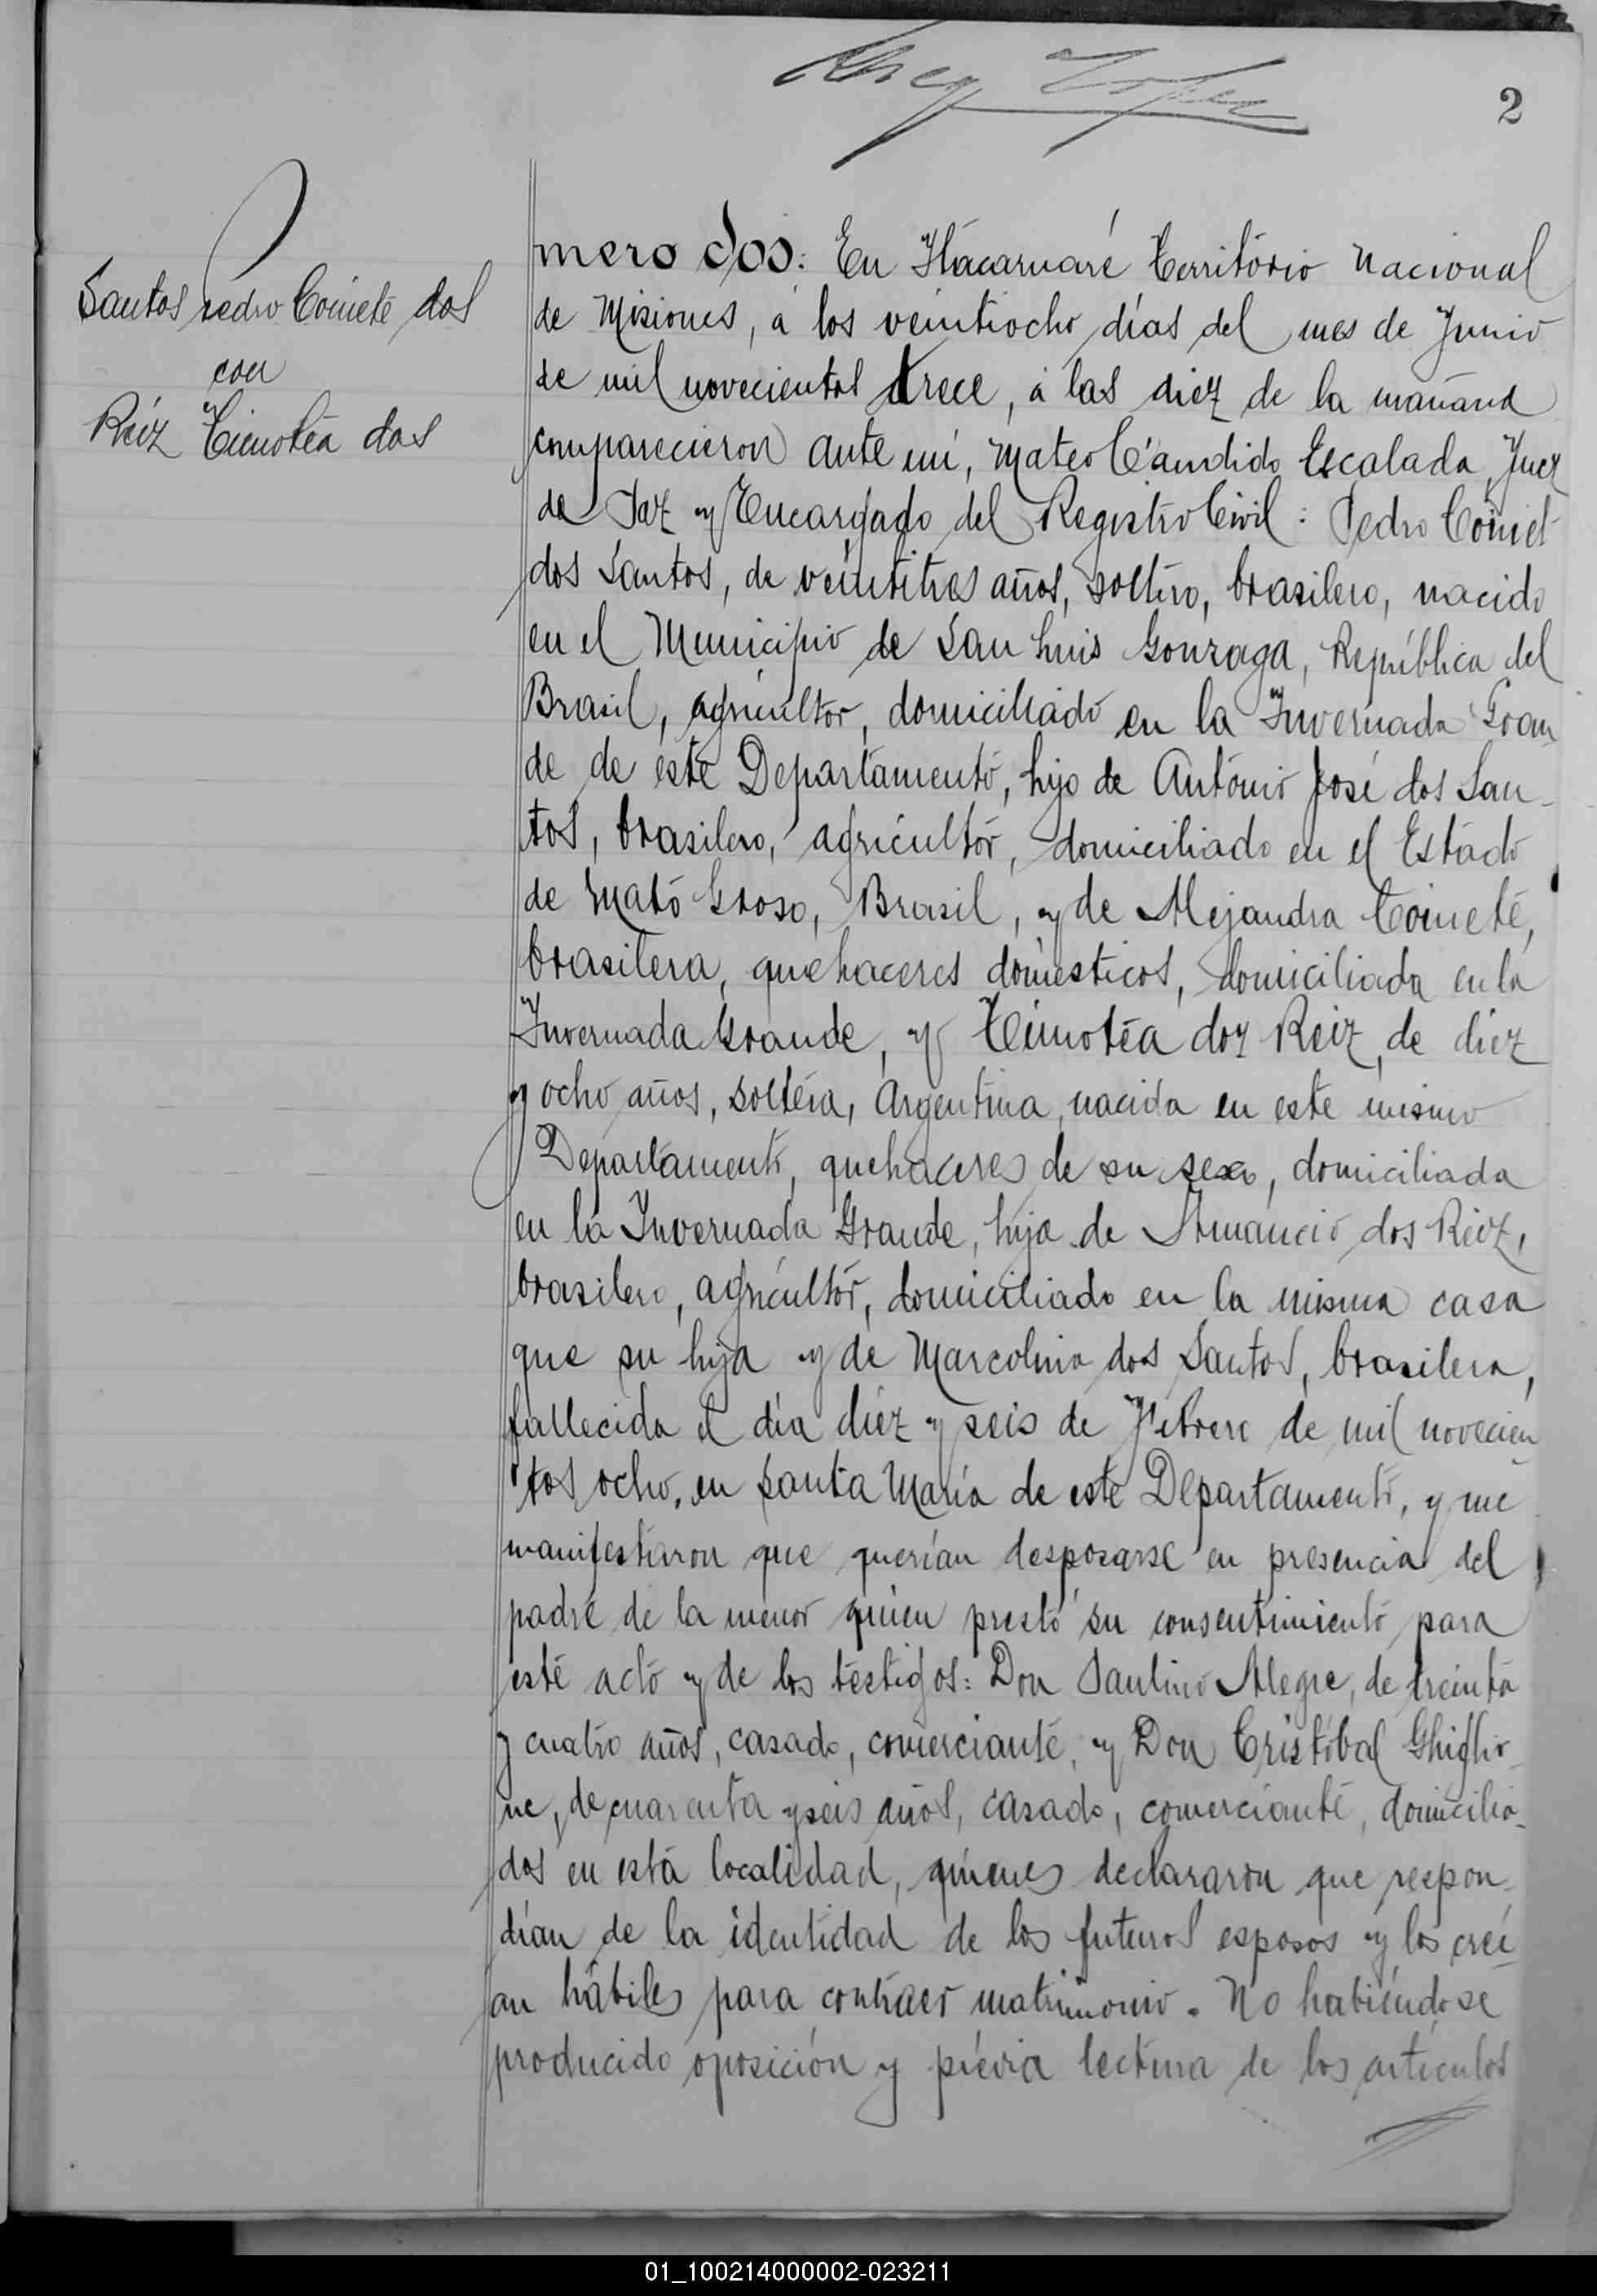 2
Santos Pedro Coineté dos
con
Reiz Timotéa dos
mero dos: En Itacaruaré Território Nacional
de Misiones, á los veintiocho días del mes de Junio
de mil novecientos trece, á las diez de la mañana
comparecieron ante mí, Mateo Cándido Escalada, Juez
de Paz y Encargado del Registro Civil: Pedro Coinet
dos Santos, de veintitres años, soltero, brasilero, nacido
en el Municipio de San Luis Gonzaga, República del
Brasil, agricultor, domiciliado en la Invernada Gran
de de este Departamento, hijo de António José dos San-
tos, brasilero, agricultor, domiciliado en el Estado
de Mato Groso, Brasil, y de Alejandra Coineté,
brasilera, quehaceres domésticos, domiciliada en la
Invernada Grande, y Timotéa doz Reiz, de diez
y ocho años, soltera, Argentina, nacida en este mismo
Departamento, quehaceres de su sexo, domiciliada
en la Invernada Grande, hija de Amancio dos Reiz,
brasilero, agricultor, domiciliado en la misma casa
que su hija y de Marcolina dos Santos, brasilera,
fallecida el día diez y seis de Febrero de mil novecien
tos ocho, en Santa María de este Departamento, y me
manifestaron que querían desposarse en presencia del
padre de la menor quien prestó su consentimiento para
este acto y de los testigos: Don Paulino Alegre, de treinta
y cuatro años, casado, comerciante, y Don Cristóbal Ghiglio-
ne, de cuarenta y seis años, casado, comerciante, domicilia-
dos en esta localidad, quienes declararon que respon-
dían de la identidad de los futuros esposos y los creí-
an hábiles para contraer matrimonio. No habiéndose
producido oposición y prévia lectura de los artículos
01_100214000002-023211